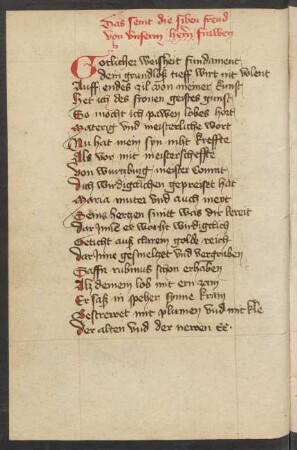 Das seint die siben freud
von unserm hern frawen
Gotlicher weisheit fundament
dem grundloß tieff wirt nit volent
Auff endes zil von meiner kunst
Het ich des fronen geistes gunst
So mocht ich pawen lobes hort
Materig vnd meisterliche wort
Nu hat mein syn niht kreffte
Als vor mit meisterscheffte
Von wurtzburg meister Connrat
Dich wirdigclichen gepreiset hat
Maria muter vnd auch meyt
Seins hertzen smitt was dir bereit
dar jnn er worcht wirdigclich
Geticht auß clarem golde reich
dar jnne gesmeltzet vnd vergraben
Saffir rubinus schon erhaben
Alz deinem lob mit ern zam
Er saß in spehen synne kram
Bestrewet mit plumen vnd mit kle
Der alten vnd der newen Ee.